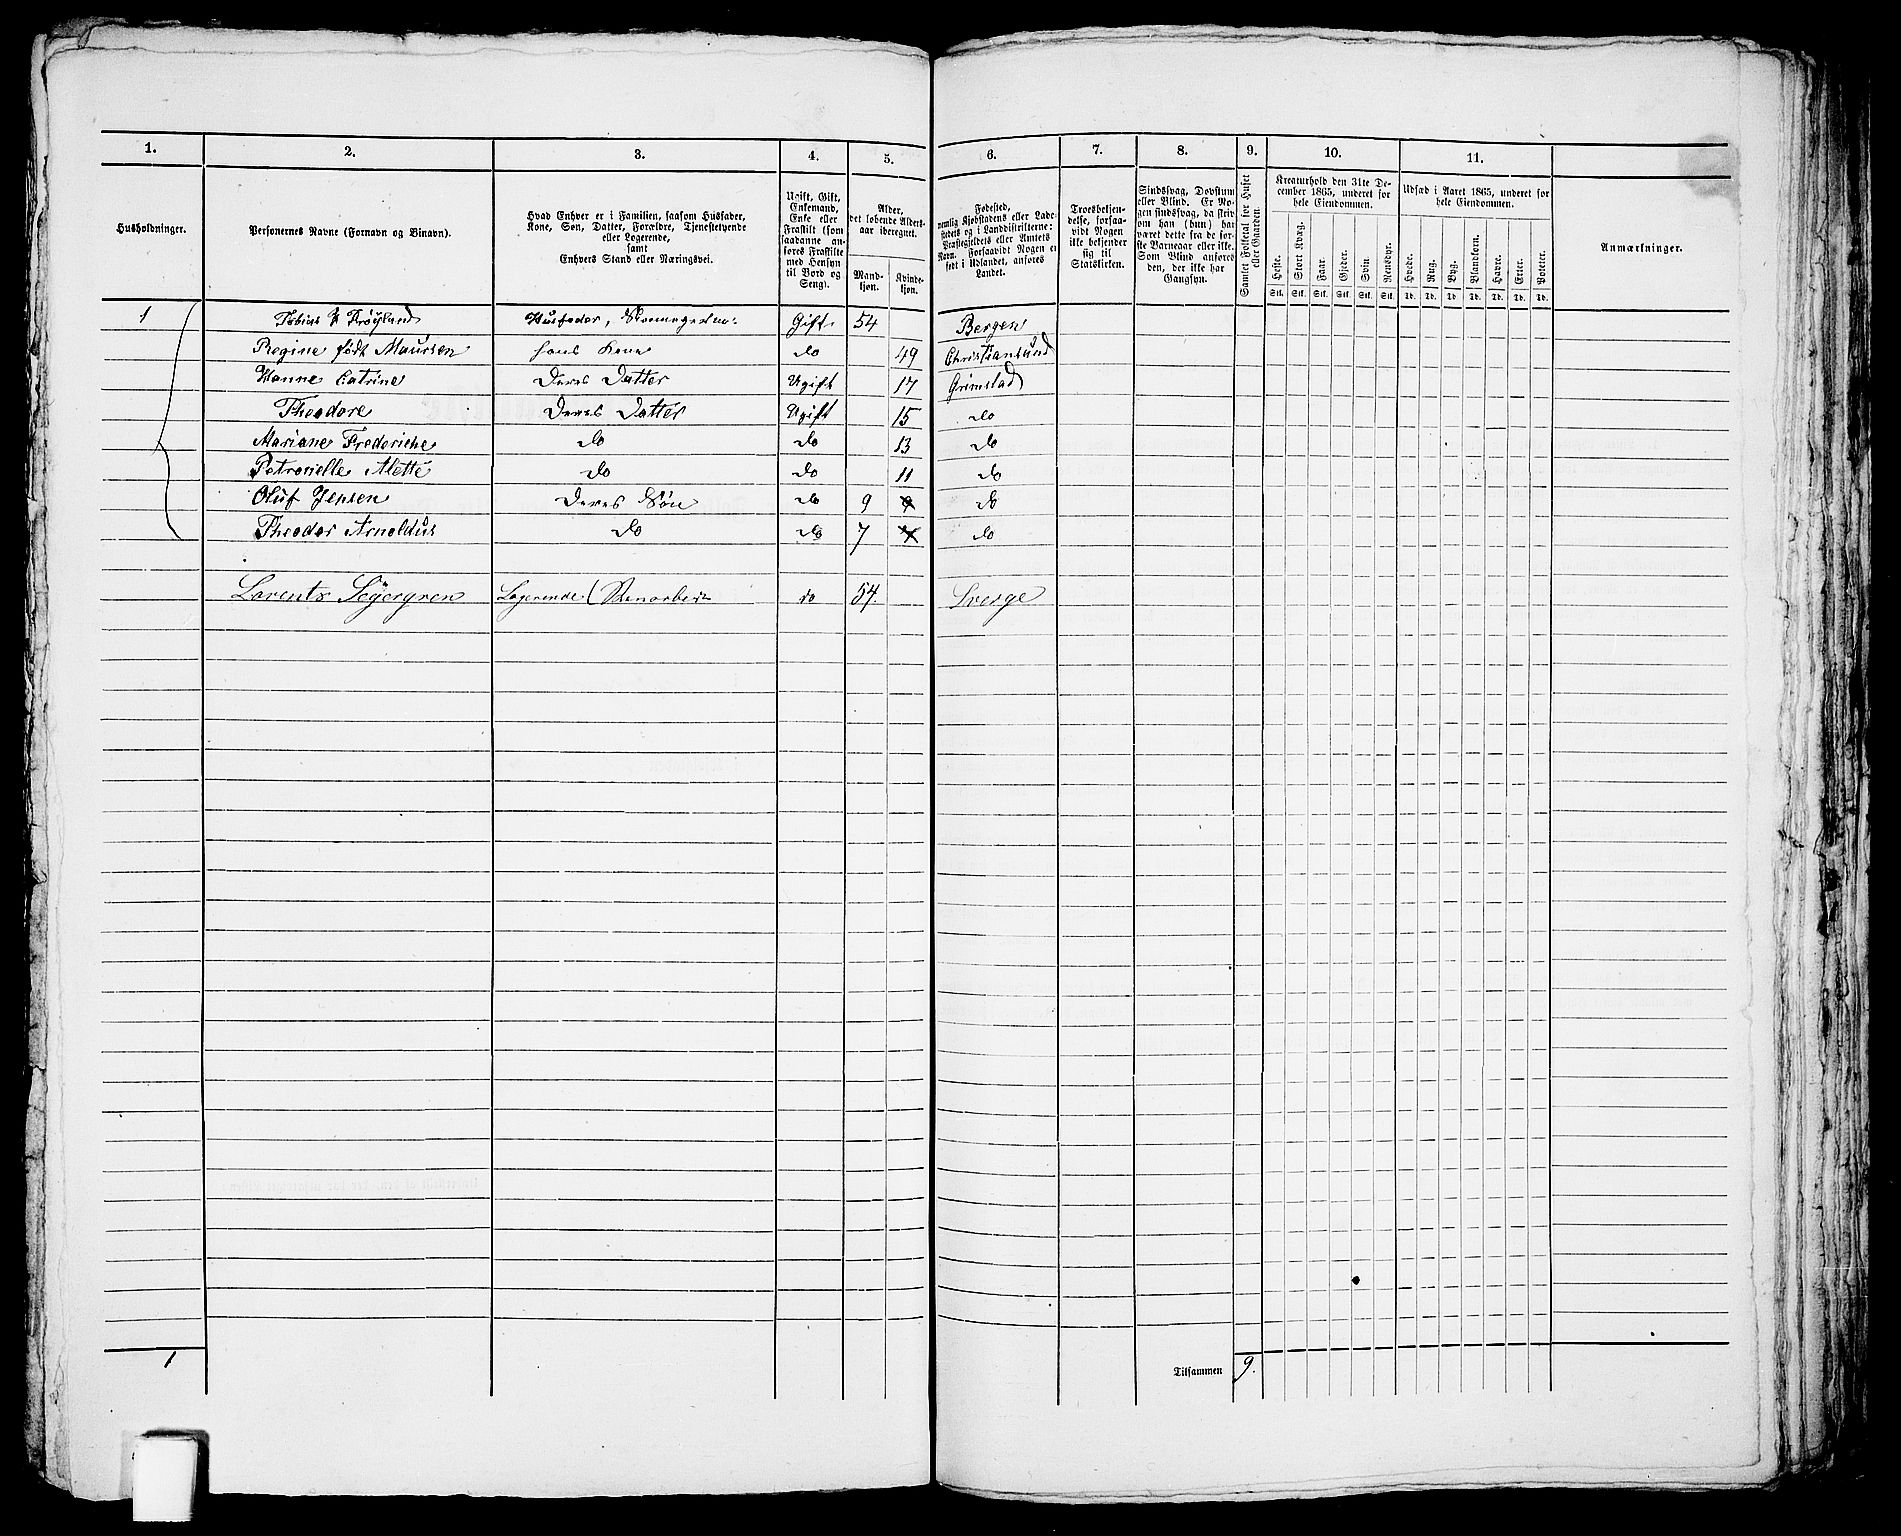 1. 2. 3. 4. 5. 6. 7. 8. 9. 10. 11.
Husholdninger.
Personernes Navne (Fornavn og Binavn).
Hvad Enhver er i Familien, saasom Husfader,
Kone, Søn, Datter, Forældre, Tjenestetyende
eller Logerende,
samt
Enhvers Stand eller Næringsvei.
Ugift, Gift,
Enkemand,
Enke eller
Fraskilt (som
saadanne anføres Fraskilte
med Hensyn
til Bord og
Seng).
Alder,
det løbende Aldersaar iberegnet.
Mandkjøn.
Kvindekjøn.
Fødested,
nemlig Kjøbstadens eller Ladestedets og i Landdistrikterne:
Præstegjeldets eller Amtets
Navn. Forsaavidt Nogen er
født i Udlandet, anføres
Landet.
Troesbekjendelse, forsaavidt Nogen
ikke bekjender
sig til
Statskirken.
Sindssvag, Døvstum
eller Blind. Er Nogen sindssvag, da skriv
om han (hun) har
været dette fra de første Barneaar eller ikke.
Som Blind anføres
den, der ikke har
Gangsyn.
Samlet Folketal for Huset
eller Gaarden.
Kreaturhold den 31te December 1865, underet for
hele Eiendommen.
Heste. Stort Kvæg. Faar. Gjeder. Svin. Rensdyr.
Stk. Stk. Stk. Stk. Stk. Stk.
Udsæd i Aaret 1865, underet for
hele Eiendommen.
Hvede. Rug. Byg. Blandkorn. Havre. Erter. Poteter.
Td. Td. Td. Td. Td. Td. Td.
Anmærkninger.
1 Tobias Frøyland Husfader, Gift 54 Bergen
Regine født Maursen hans Kone do 49 Christiansund
Hanne Catrine Deres Datter Ugift 17 Grimstad
Theodore Deres Datter Ugift 15 do
Mariane Frederiche do do 13 do
Petronelle Alette do do 11 do
Oluf Jensen Deres Søn do 9 do
Theodor Arnoldus do do 7 do
Lorents Søgergren Logerende do 54. Sverge
1 Tilsammen 9.